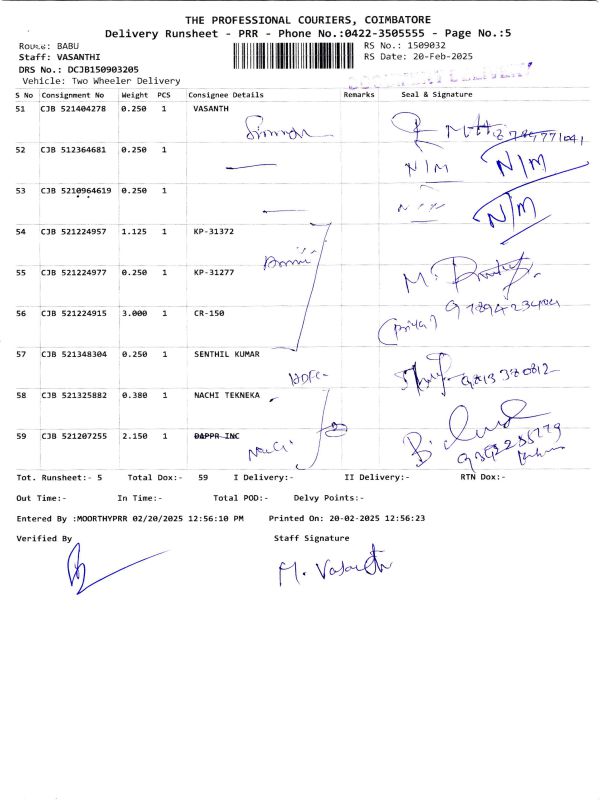 THE PROFESSIONAL COURIERS, COIMBATORE
Delivery Runsheet - PRR - Phone No.:0422-3505555 - Page No.:5
Route: BABU RS No.: 1509032
Staff: VASANTHI RS Date: 20-Feb-2025
DRS No.: DCJB150903205
Vehicle: Two Wheeler Delivery
S No Consignment No Weight PCS Consignee Details Remarks Seal & Signature
51 CJB 521404278 0.250 1 VASANTH
52 CJB 512364681 0.250 1
N/M N/M
53 CJB 5210964619 0.250 1
N/M
54 CJB 521224957 1.125 1 KP-31372
55 CJB 521224977 0.250 1 KP-31277
M.
56 CJB 521224915 3.000 1 CR-150
(priya)
57 CJB 521348304 0.250 1 SENTHIL KUMAR
HDFC
58 CJB 521325882 0.380 1 NACHI TEKNEKA
59 CJB 521207255 2.150 1 DAPPR INC
Nachi
Tot. Runsheet:- 5 Total Dox:- 59 I Delivery:- II Delivery:- RTN Dox:-
Out Time:- In Time:- Total POD:- Delvy Points:-
Entered By :MOORTHYPRR 02/20/2025 12:56:10 PM Printed On: 20-02-2025 12:56:23
Verified By Staff Signature
M. Vasanth